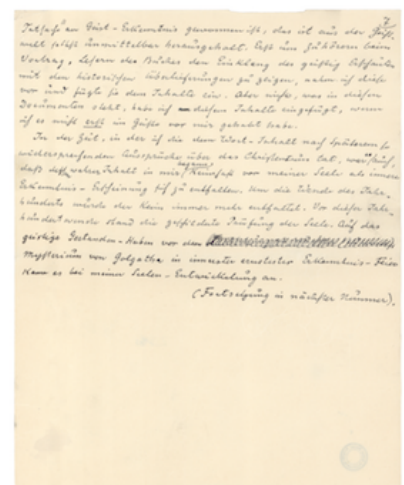 7.
Tatsache" an Geist-Erkenntnis gewonnen ist, das ist aus der Geist-
welt selbst unmittelbar herausgeholt. Erst um Zuhörern beim
Vortrag, Lesern des Buches den Einklang des geistig Erschauten
mit den historischen Überlieferungen zu zeigen, nahm ich diese
vor und fügte sie dem Inhalte ein. Aber nichts, was in diesen
Dokumenten steht, habe ich diesem Inhalte eingefügt, wenn
ich es nicht erst im Geiste vor mir gehabt habe.
In der Zeit, in der ich die dem Wort-Inhalt nach Späterem so
widersprechenden Aussprüche über das Christentum tat, war es auch,
daß dessen wahrer Inhalt in mir begann keimhaft vor meiner Seele als innere
Erkenntnis-Erscheinung sich zu entfalten. Um die Wende des Jahr-
hunderts wurde der Keim immer mehr entfaltet. Vor dieser Jahr-
hundertwende stand die geschilderte Prüfung der Seele. Auf das
geistige Gestanden-Haben vor dem
Mysterium von Golgatha in innerster ernstester Erkenntnis-Feier
kam es bei meiner Seelen-Entwickelung an.
(Fortsetzung in nächster Nummer).